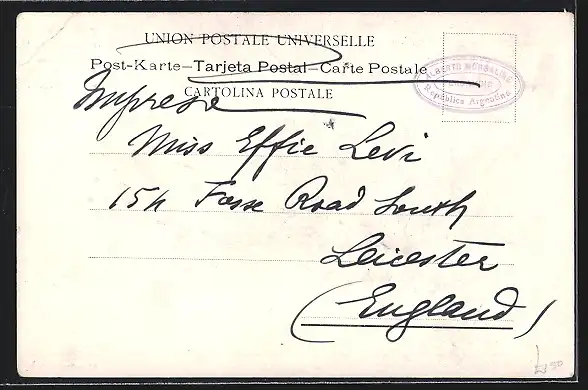 UNION POSTALE UNIVERSELLE
Post-Karte—Tarjeta Postal—Carte Postale
CARTOLINA POSTALE
Impreso
Miss Effie Levi
Fosse Road South
Leicester
(England)
ALBERTO
República Argentina